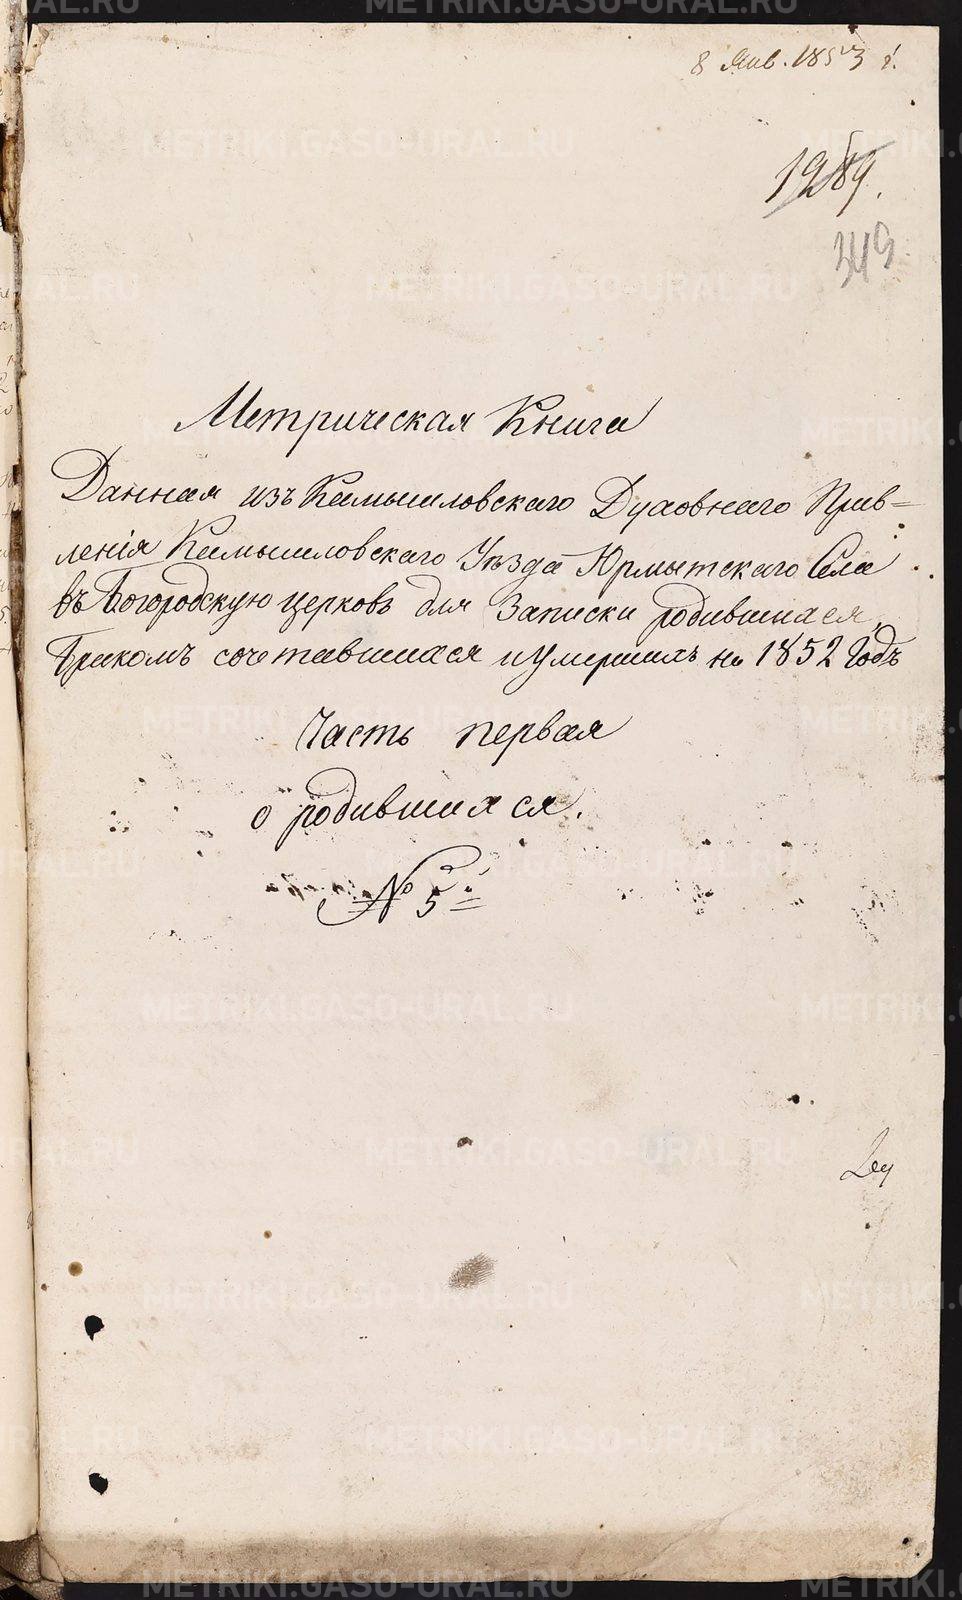 8 Янв. 1853 г.
1989.
349
Метрическая Книга
Данная изъ Камышловскаго Духовнаго Прав=
ленія Камышловскаго Уѣзда Юрмытскаго Села
въ Богородскую церковь для Записки родившихся,
бракомъ сочетавшихся и Умершихъ на 1852 Годъ
Часть первая
о родившихся.
№ 5й
METRIKI.GASO-URAL.RU